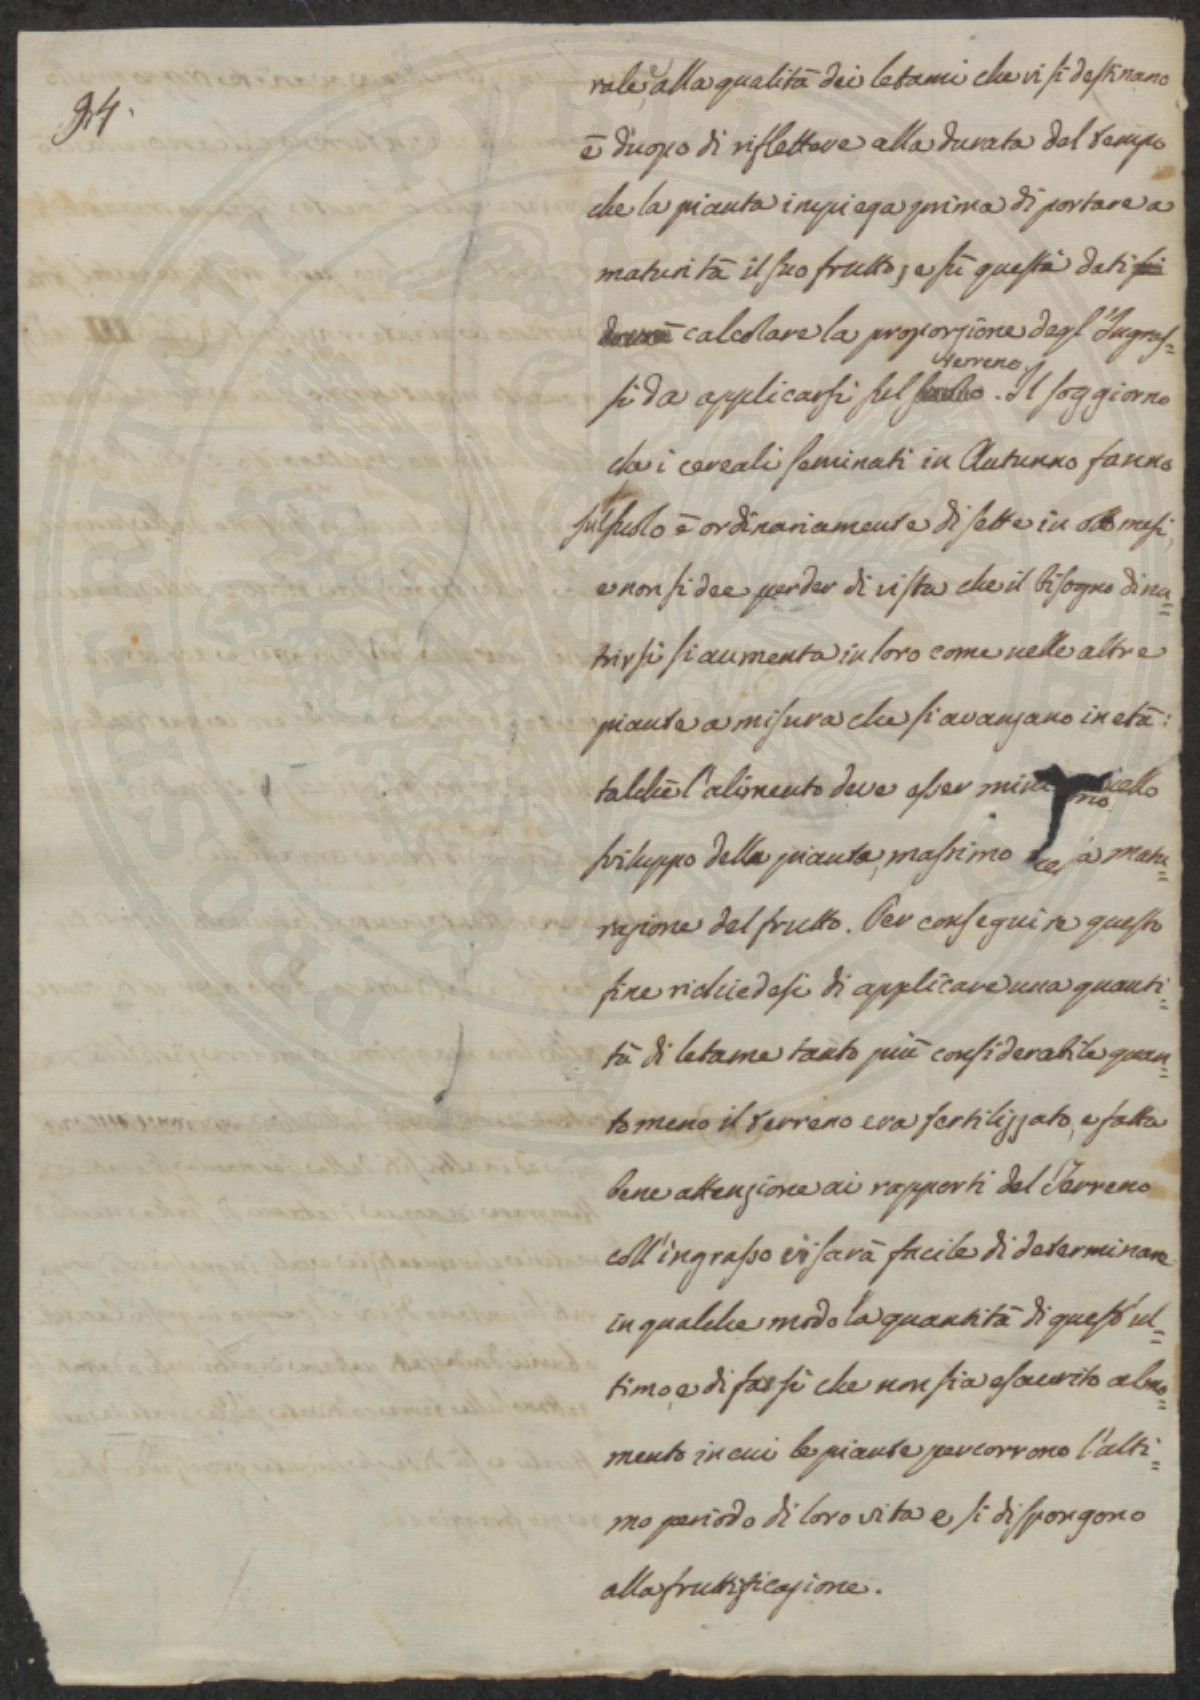 94.
rale, e alla qualità dei letami che vi si destinano
è d'uopo di riflettere alla durata del tempo
che la pianta impiega prima di portare a
maturità il suo frutto; e sù questi dati si
dovrà calcolare la proporzione degl'Ingras=
si da applicarsi sul suolo terreno. Il soggiorno
che i cereali seminati in Autunno fanno
sul suolo è ordinariamente di sette in otto mesi,
e non si dee perder di vista che il bisogno di nu=
trirsi si aumenta in loro come nelle altre
piante a misura che si avanzano in età:
talchè l'alimento deve esser mini mo nello
sviluppo della pianta, massimo a matu=
razione del frutto. Per conseguire questo
fine richiedesi di applicare una quanti=
tà di letame tanto più considerabile quan=
to meno il terreno era fertilizzato, e fatta
bene attenzione ai rapporti del Terreno
coll'ingrasso vi sarà facile di determinare
in qualche modo la quantità di quest'ul=
timo, e di far sì che non sia esaurito al mo=
mento in cui le piante percorrono l'ulti=
mo periodo di loro vita e si dispongono
alla fruttificazione.